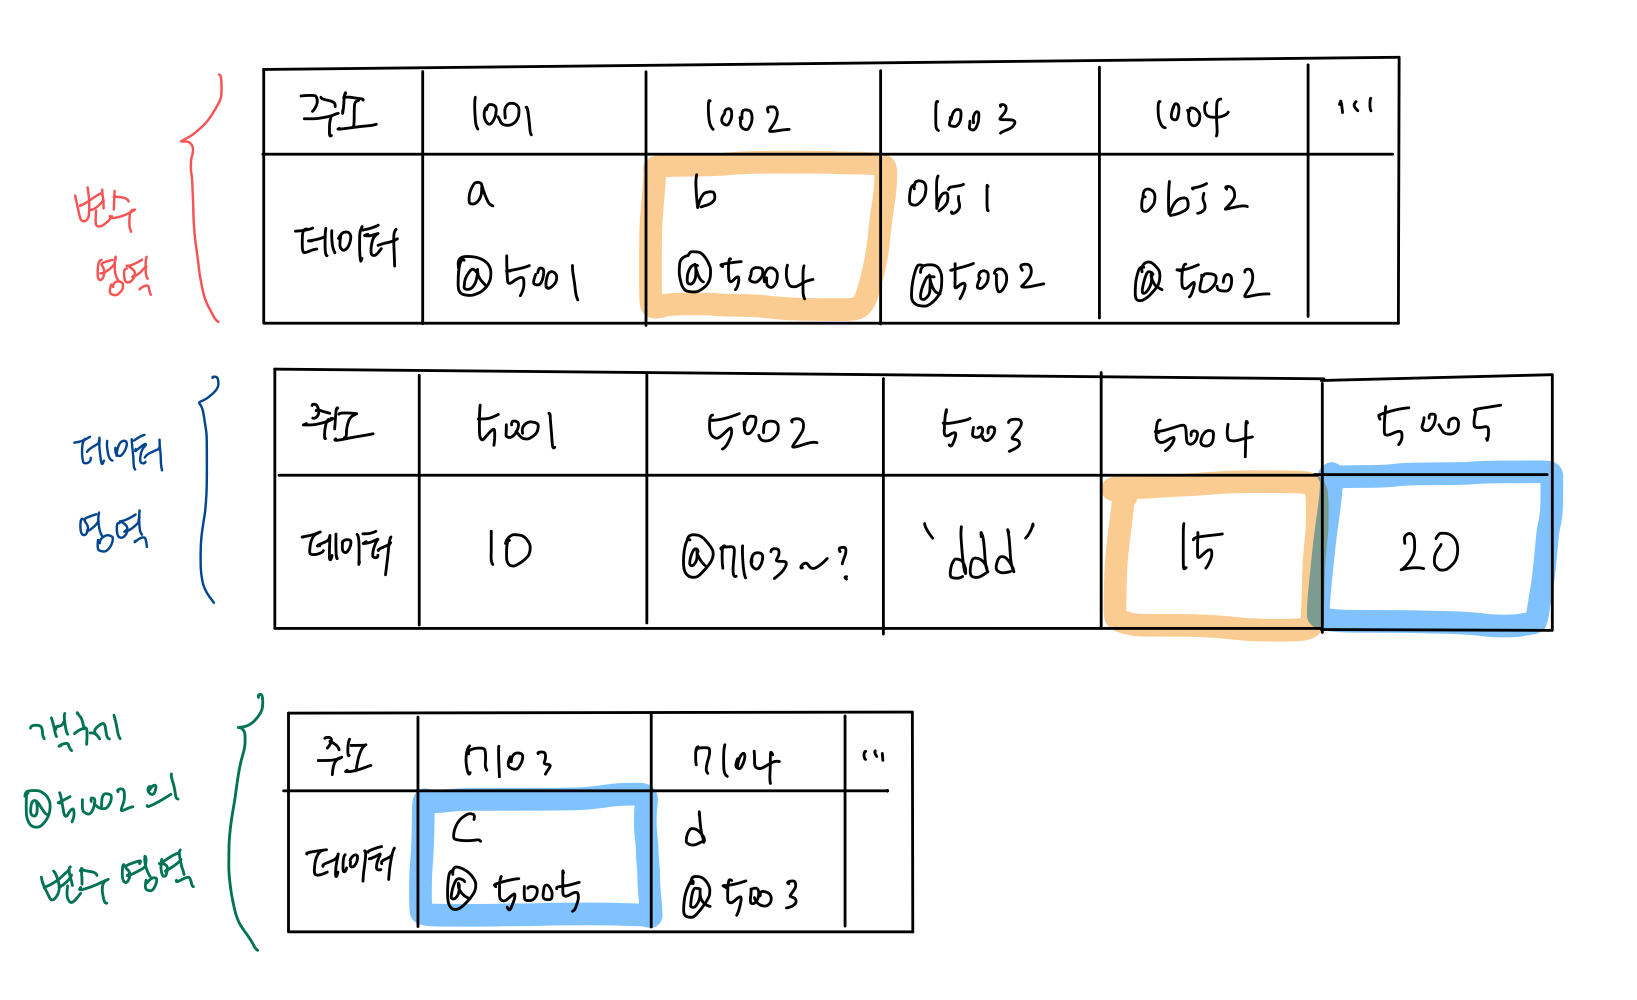 변수
영역
주소 1001 1002 1003 1004 ...
데이터 a b obj1 obj2
@5001 @5004 @5002 @5002
데이터
영역
주소 5001 5002 5003 5004 5005
데이터 10 @7103~? 'ddd' 15 20
객체
@5002의
변수 영역
주소 7103 7104 ...
데이터 c d
@5005 @5003